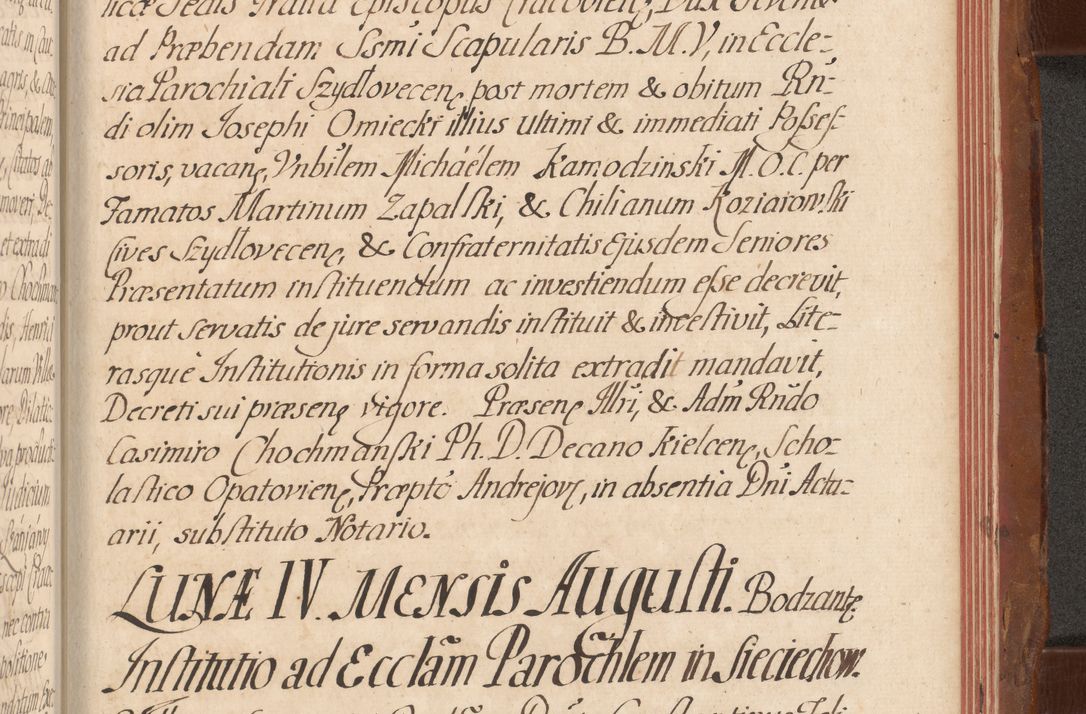 licæ Sedis Gratia Episcopus Cracovien̄ę, Dux Severiæ
ad Præbendam Ssmi Scapularis B. M. V, in Eccle=
sia Parochiali Szydłovecenę, post mortem & obitum Rn̄=
di olim Josephi Omiecki illius ultimi & immediati Possef=
soris, vacanę, Vnbilem Micháélem Kamodzinski M. O. C. per
Famatos Martinum Zapalski, & Chilianum Koziarowski
Cives Szydłovecenę, & Confraternitatis Ejusdem Seniores
Præsentatum instituendum ac investiendum esse decrevit,
prout servatis de jure servandis instituit & investivit, Lite=
rasquè Institutionis in forma solita extradit mandavit,
Decreti sui præsenę vigore. Præsenę Illri, & Adm̄ Rn̄do
Casimiro Chochmanski Ph. D. Decano Kielcenę, Scho=
lastico Opatovienę, Præptō Andrejovę, in absentia Dn̄i Actu=
arii, substituto Notario.
LUNÆ IV. MENSIS Augusti. Bodzantę.
Institutio ad Ecclām Parochlem in Sieciechow.
ratis in
agris, &
Principalem,
moveri, De
et extradi
Chochman:
dis, Henrici
larum Ville
Judicium
nec contra